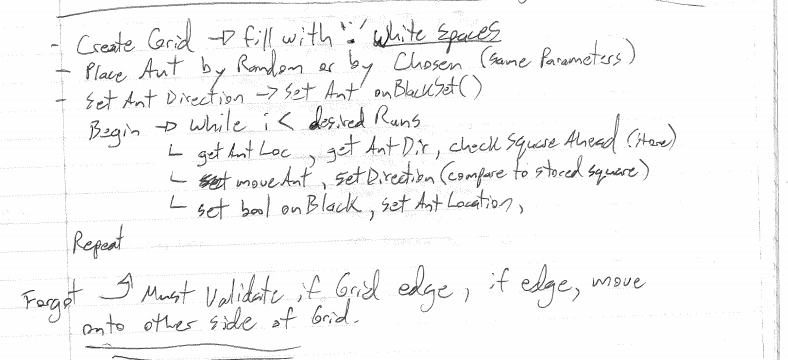 - Create Grid → fill with '.' White Spaces
- Place Ant by Random or by Chosen (same Parameters)
- Set Ant Direction → Set Ant onBlackSet()
Begin → While i < desired Runs
└ getAntLoc, getAntDir, check Square Ahead (store)
└ moveAnt, setDirection (compare to stored square)
└ set bool onBlack, set AntLocation,
Repeat
Forgot ↑ Must Validate if Grid edge, if edge, move
onto other side of Grid.